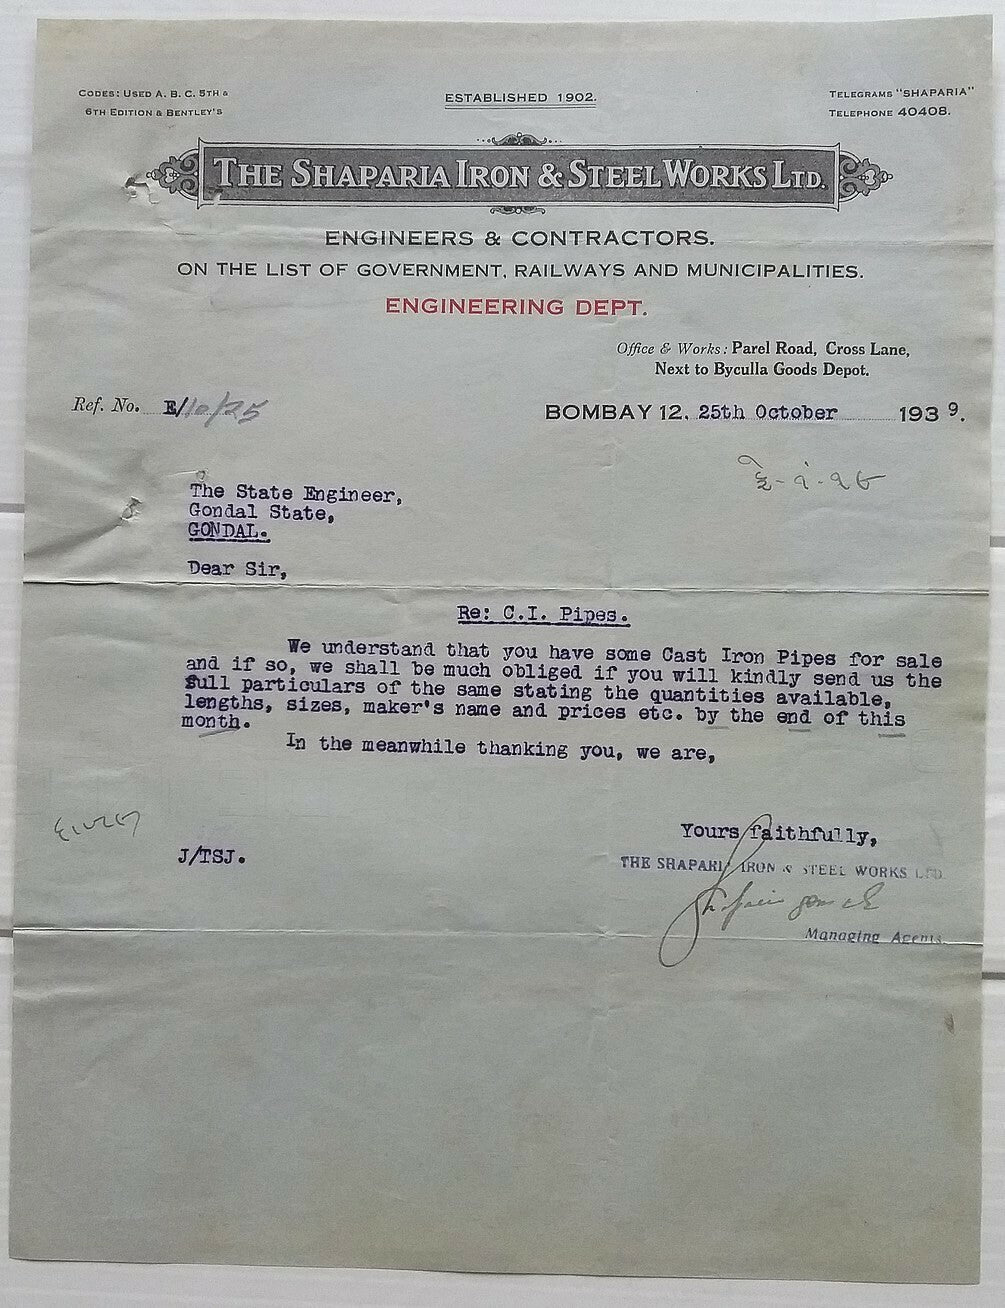 CODES: USED A. B. C. 5TH &
6TH EDITION & BENTLEY'S
ESTABLISHED 1902.
TELEGRAMS "SHAPARIA"
TELEPHONE 40408.
THE SHAPARIA IRON & STEEL WORKS LTD.
ENGINEERS & CONTRACTORS.
ON THE LIST OF GOVERNMENT, RAILWAYS AND MUNICIPALITIES.
ENGINEERING DEPT.
Office & Works: Parel Road, Cross Lane,
Next to Byculla Goods Depot.
Ref. No. E/10/25
BOMBAY 12. 25th October 1939.
The State Engineer,
Gondal State,
GONDAL.
Dear Sir,
Re: C.I. Pipes.
We understand that you have some Cast Iron Pipes for sale
and if so, we shall be much obliged if you will kindly send us the
full particulars of the same stating the quantities available,
lengths, sizes, maker's name and prices etc. by the end of this
month.
In the meanwhile thanking you, we are,
Yours faithfully,
J/TSJ.
THE SHAPARIA IRON & STEEL WORKS LTD.
Managing Agents